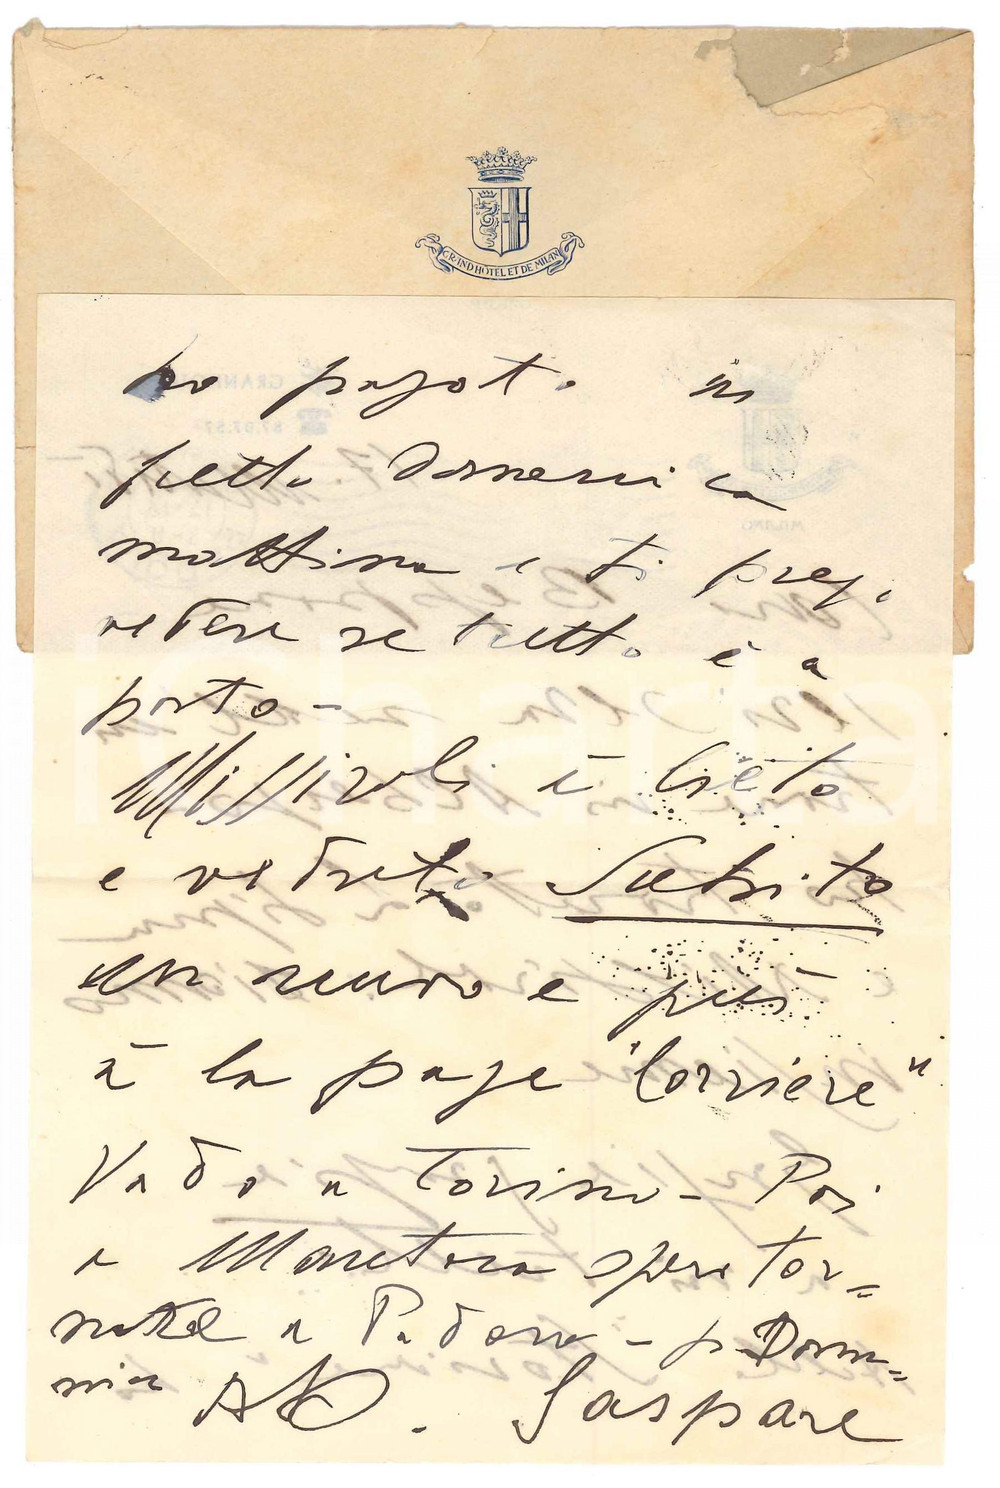 GRAND HOTEL ET DE MILAN
ho pagato in
fretta Domenica
mattina e ti prego
vedere se tutto è a
posto -
Missiroli è lieto
e vedrete Subito
un nuovo e più
à la page "Corriere"
Vado a Torino - Poi
a Mantova spero tor=
nate a Padova - p. Dom=
Gaspare